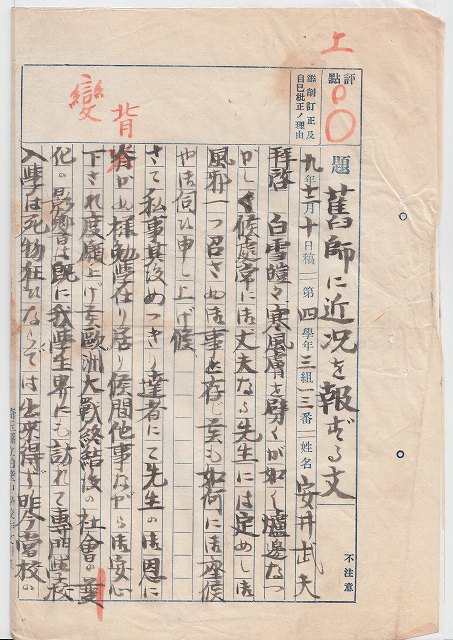 上
評點
八〇
添削訂正及
自己批正ノ理由
背
變
題 舊師に近況を報ずる文
九年十二月十日稿 第四學年三組一三番 姓名 安井武夫
不注意
拝啓 白雪皚々寒風膚を劈くが如く爐邊なつ
かしく候處常に御丈夫なる先生には定めし御
風邪一つ召さぬ御事と存じ至も如何に御座候
や御伺ひ申し上げ候
さて私事其後めつきり達者にて先生の御恩に
背かぬ様勉學仕り居り候間他事ながら御安心
下され度願上げ候歐洲大戰終結後の社會の變
化の影響は既に我學生界にも訪れて專門學校
入學は死物狂ひならでは出來得ず昨今當校の